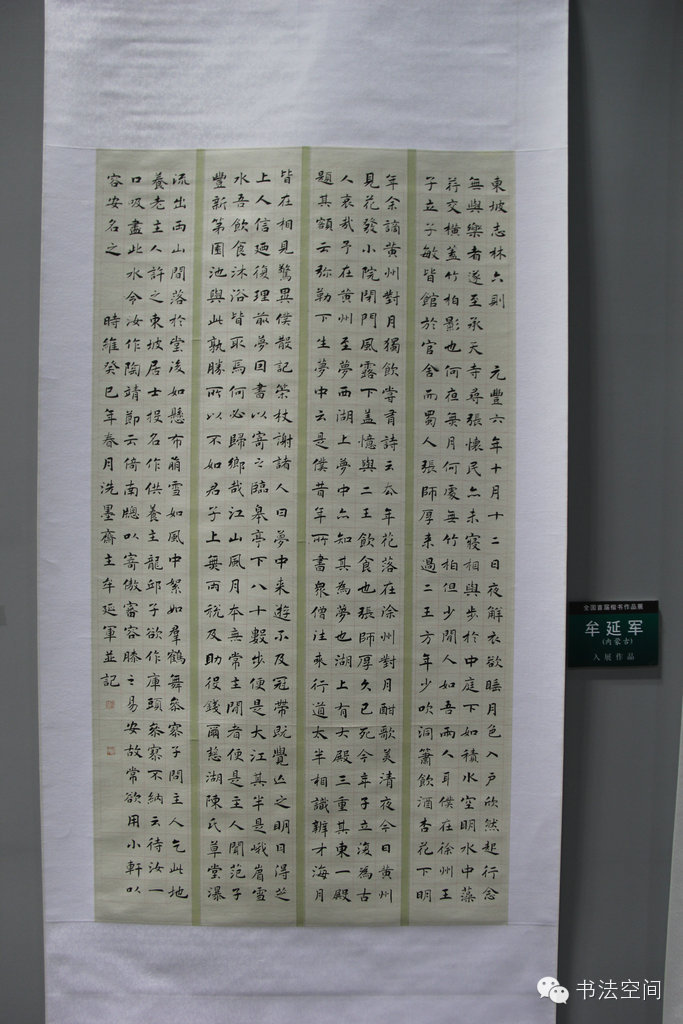 東坡志林六則 元豐六年十月十二日夜解衣欲睡月色入戶欣然起行念
無與樂者遂至承天寺尋張懷民亦未寢相與步於中庭下如積水空明水中藻
荇交橫蓋竹柏影也何夜無月何處無竹柏但少閒人如吾兩人耳僕在徐州王
子立子敏皆館於官舍而蜀人張師厚來過二王方年少吹洞簫飲酒杏花下明
年余謫黃州對月獨飲嘗有詩云去年花落在徐州對月酣歌美清夜今日黃州
見花發小院閉門風露下蓋憶與二王飲食也張師厚久已死今年子立復為古
人哀哉予在黃州至夢西湖上夢中亦知其為夢也湖上有大殿三重其東一殿
題其額云弥勒下生夢中云是僕昔年所書眾僧往來行道太半相識辨才海月
皆在相見驚異僕散記策杖謝諸人曰夢中來遊不及冠帶既覺亡之明日得芝
上人信廼復理前夢因書以寄之臨皋亭下八十數步便是大江其半是峨眉雪
水吾飲食沐浴皆取焉何必歸鄉哉江山風月本無常主閒者便是主人聞范子
豐新第園池與此孰勝所以不如君子上無兩稅及助役錢爾慈湖陳氏草堂瀑
流出兩山間落於堂後如懸布崩雪如風中絮如群鶴舞參寥子問主人乞此地
養老主人許之東坡居士投名作供養主龍邱子欲作庫頭參寥不納云待汝一
口吸盡此水令汝作陶靖節云倚南牕以寄傲審容膝之易安故常欲用小軒以
容安名之 時維癸巳年春月洗墨齋主牟延軍並記
全国首届楷书作品展
牟延军
(内蒙古)
入展作品
书法空间